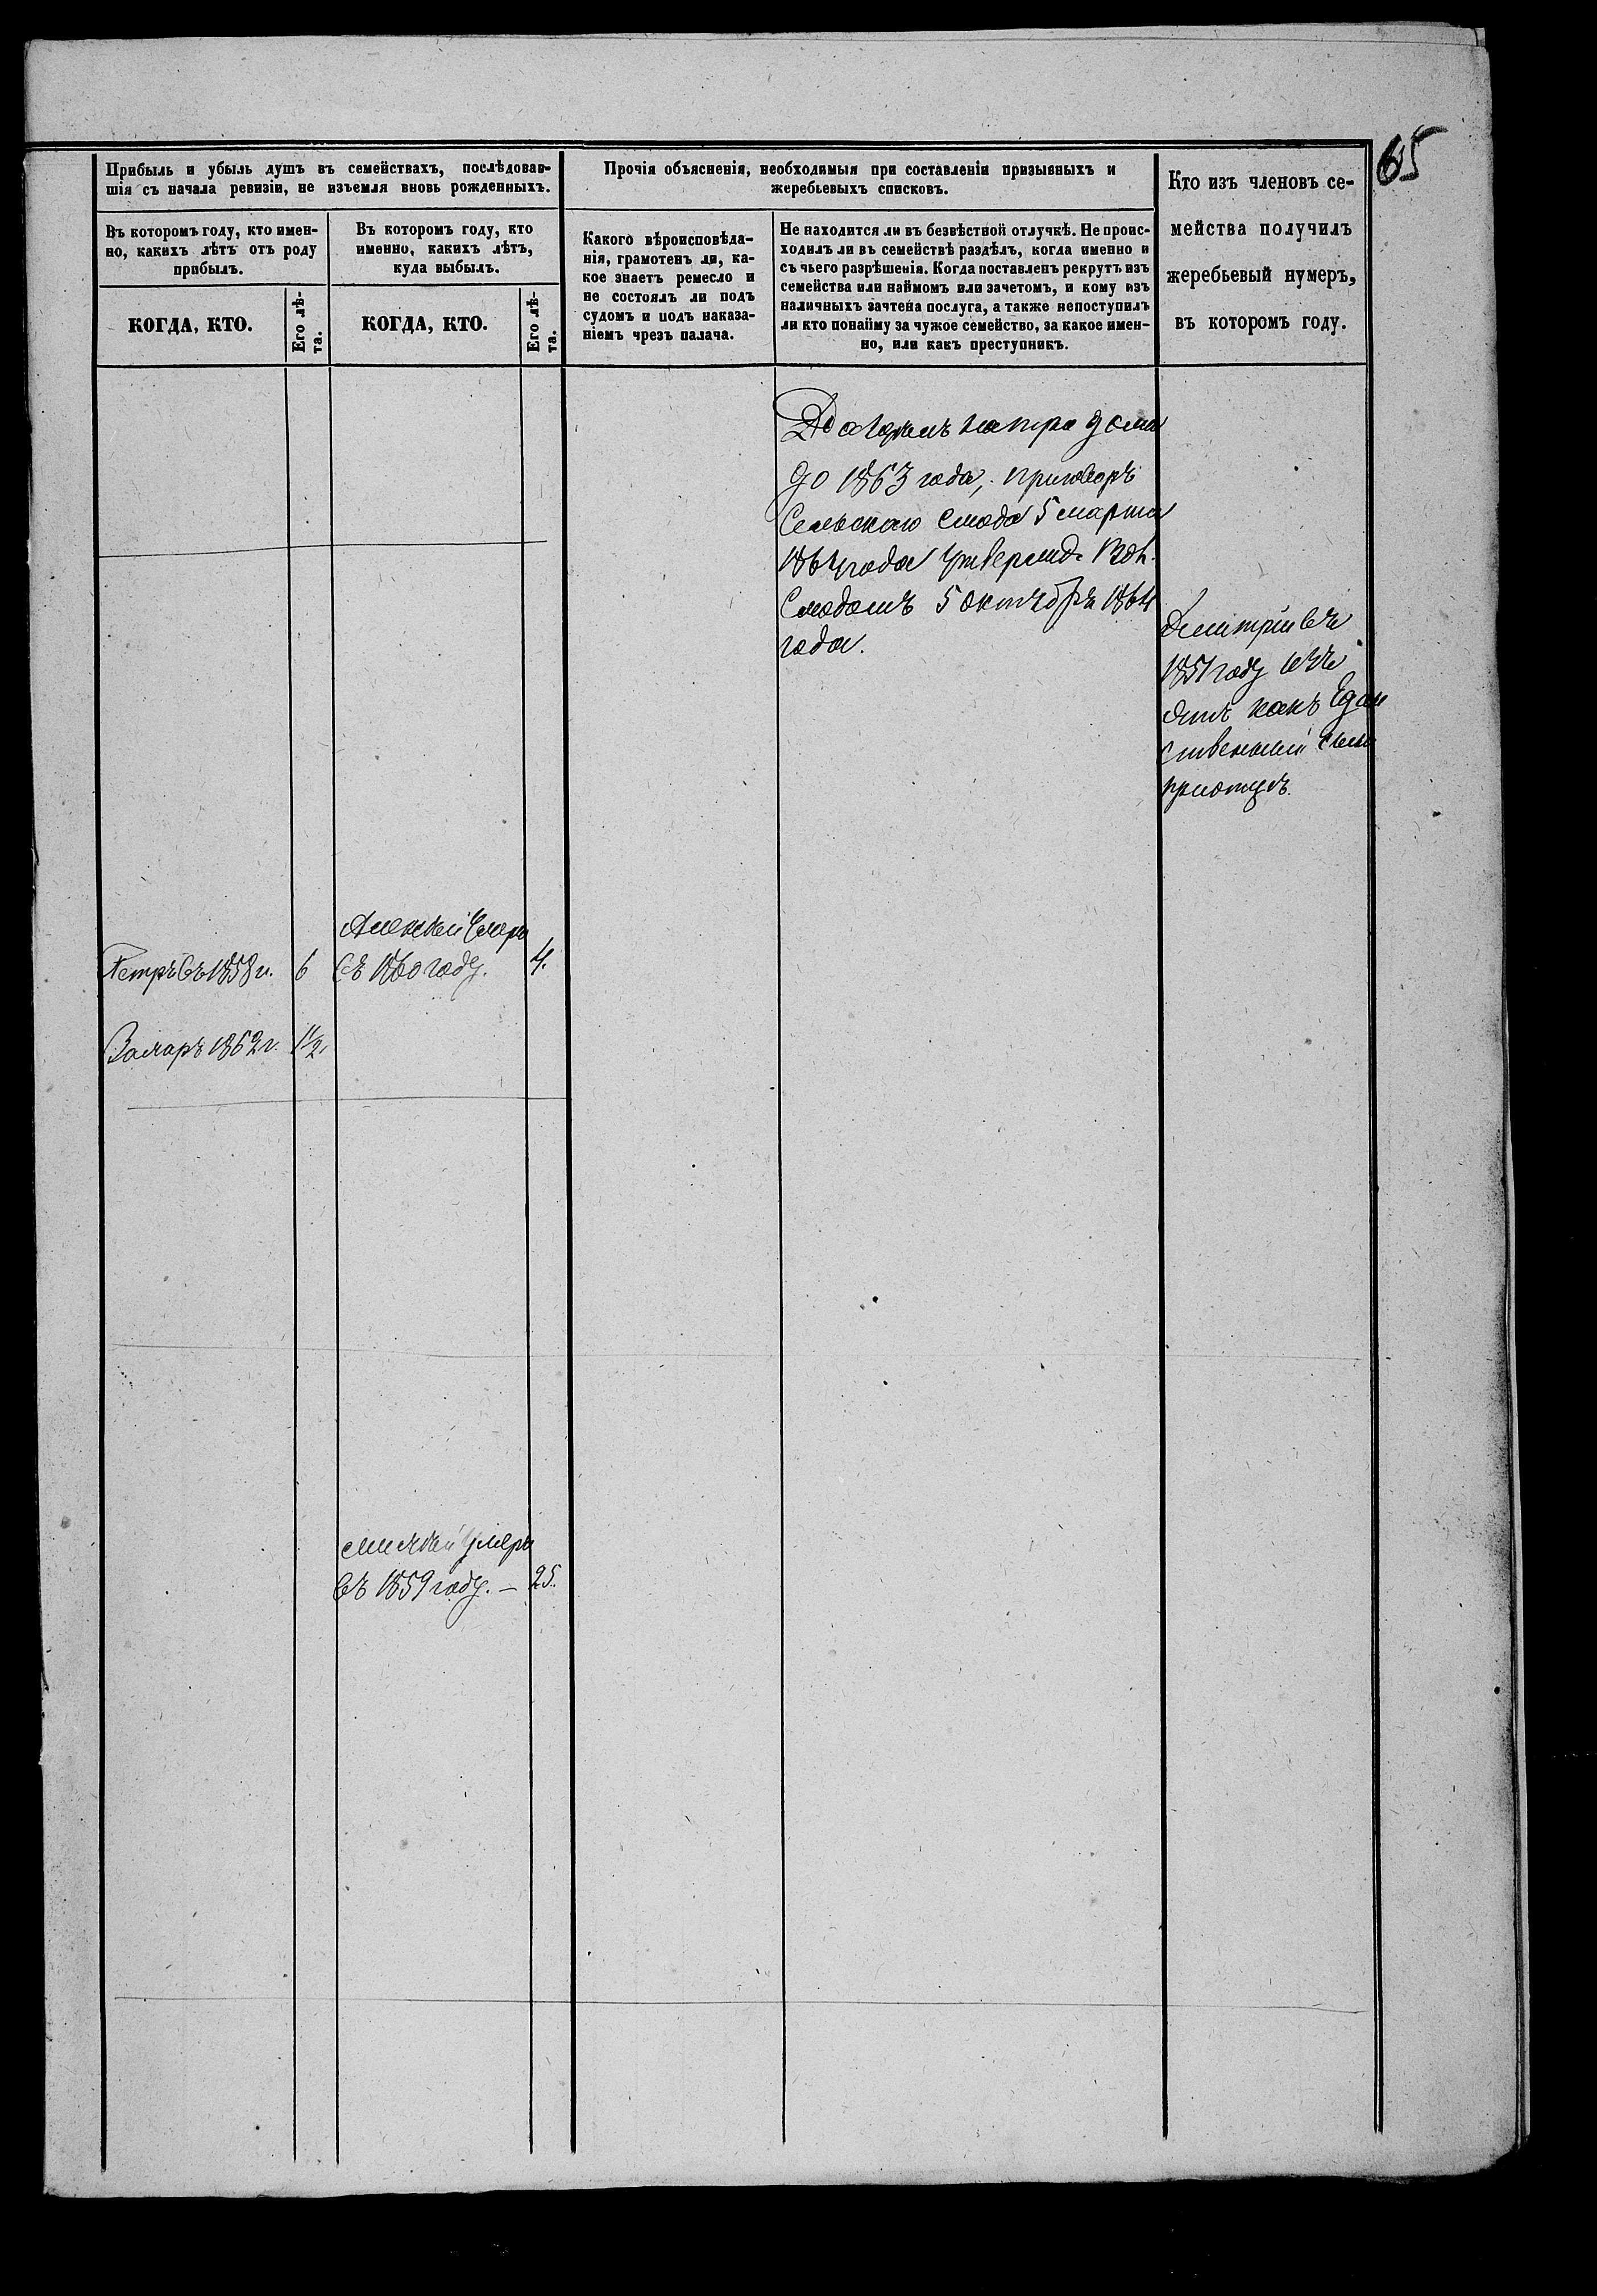 65
Прибыль и убыль душъ въ семействахъ, послѣдовав-
шія съ начала ревизіи, не изъемля вновь рожденныхъ.
Въ которомъ году, кто имен-
но, какихъ лѣтъ отъ роду
прибылъ.
КОГДА, КТО.
Его лѣ-
та.
Въ которомъ году, кто
именно, какихъ лѣтъ,
куда выбылъ.
КОГДА, КТО.
Его лѣ-
та.
Прочія объясненія, необходимыя при составленіи призывныхъ и
жеребьевыхъ списковъ.
Какого вѣроисповѣда-
нія, грамотенъ ли, ка-
кое знаетъ ремесло и
не состоялъ ли подъ
судомъ и подъ наказа-
ніемъ чрезъ палача.
Не находится ли въ безвѣстной отлучкѣ. Не проис-
ходилъ ли въ семействѣ раздѣлъ, когда именно и
съ чьего разрѣшенія. Когда поставленъ рекрутъ изъ
семейства или наймомъ или зачетомъ, и кому изъ
наличныхъ зачтена послуга, а также непоступилъ
ли кто понайму за чужое семейство, за какое имен-
но, или какъ преступникъ.
Кто изъ членовъ се-
мейства получилъ
жеребьевый нумеръ,
въ которомъ году.
на три дома
до 1863 года, приговоръ
Сельскаго схода 5 марта
1864 года утвержд. Вол.
Сходомъ 5 октября 1864
года.
Дмитрій въ
1851 году
какъ Един
ственный сынъ
приотцѣ.
Алексѣй Умеръ
Петръ въ 1858 г. 6 въ 1860 году. 4.
Захаръ 1862 г. 1/2
Умеръ
въ 1859 году. — 25.